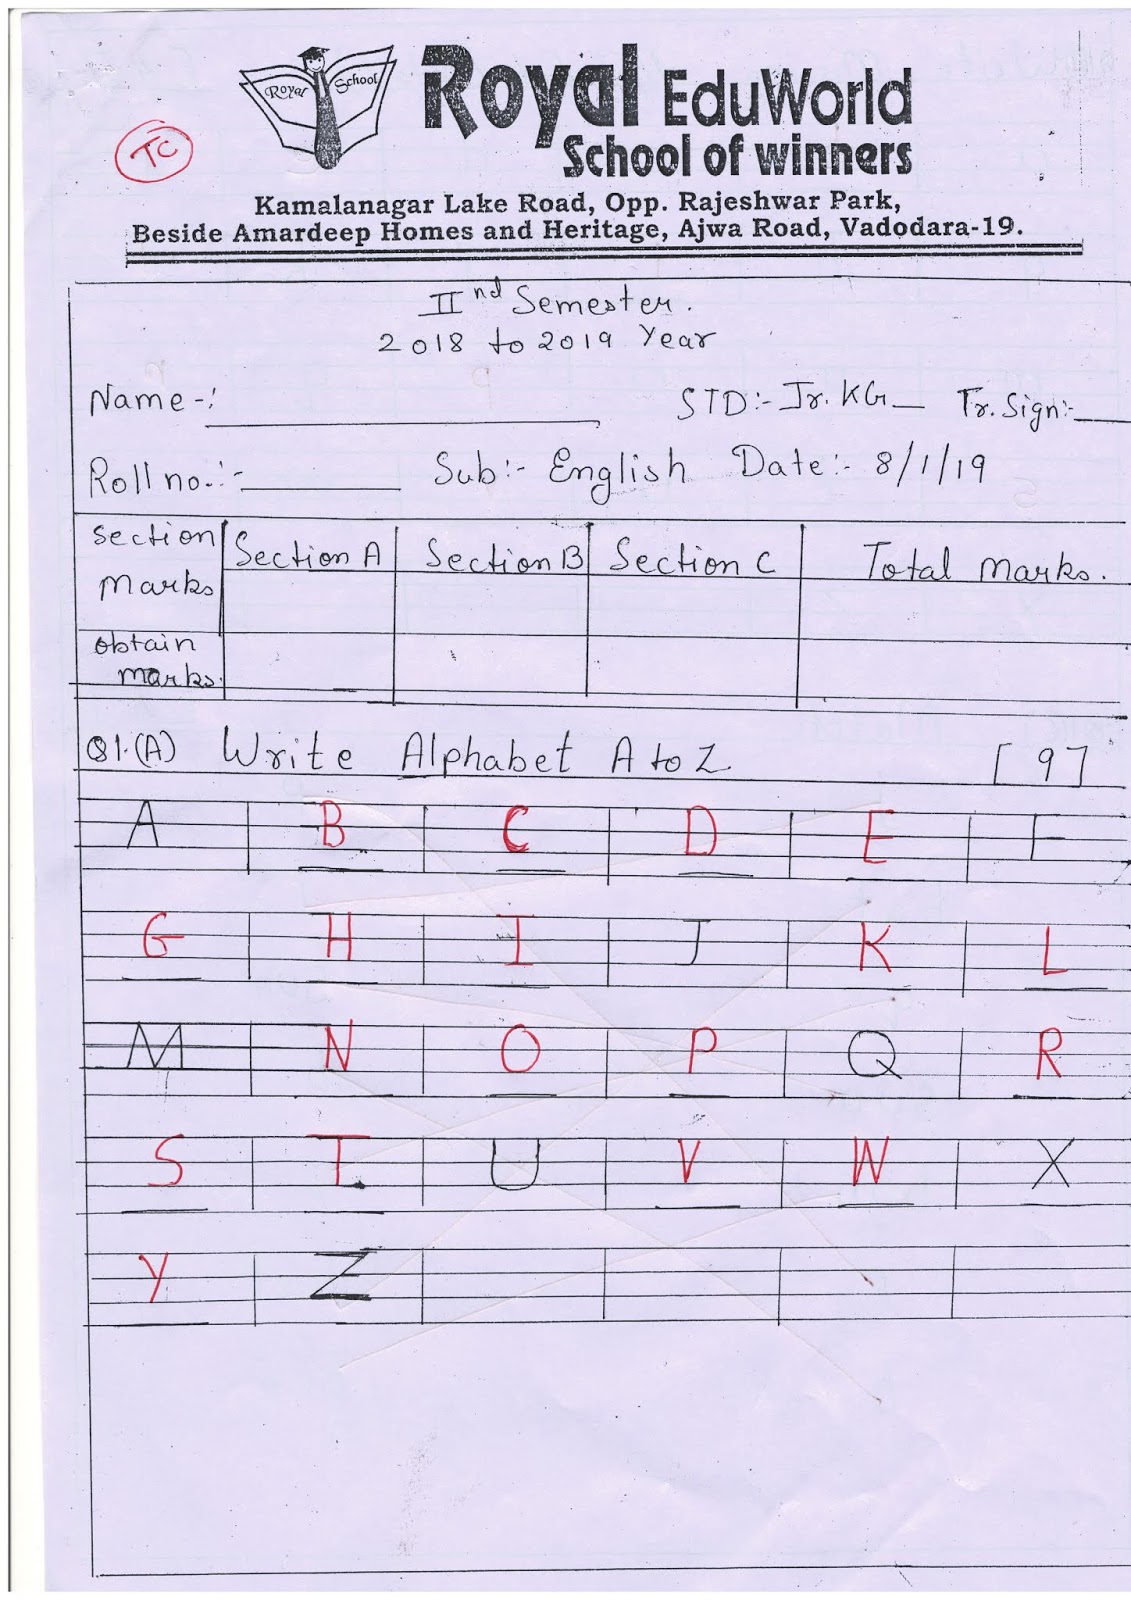 Royal School
Royal EduWorld
School of winners
TC
Kamalanagar Lake Road, Opp. Rajeshwar Park,
Beside Amardeep Homes and Heritage, Ajwa Road, Vadodara-19.
IInd Semester.
2018 to 2019 Year
Name -: STD:- Jr. KG Tr. Sign:-
Roll no.:- Sub:- English Date:- 8/1/19
section marks Section A Section B Section C Total Marks.
obtain marks.
Q1.(A) Write Alphabet A to Z [ 9 ]
A B C D E F
G H I J K L
M N O P Q R
S T U V W X
Y Z